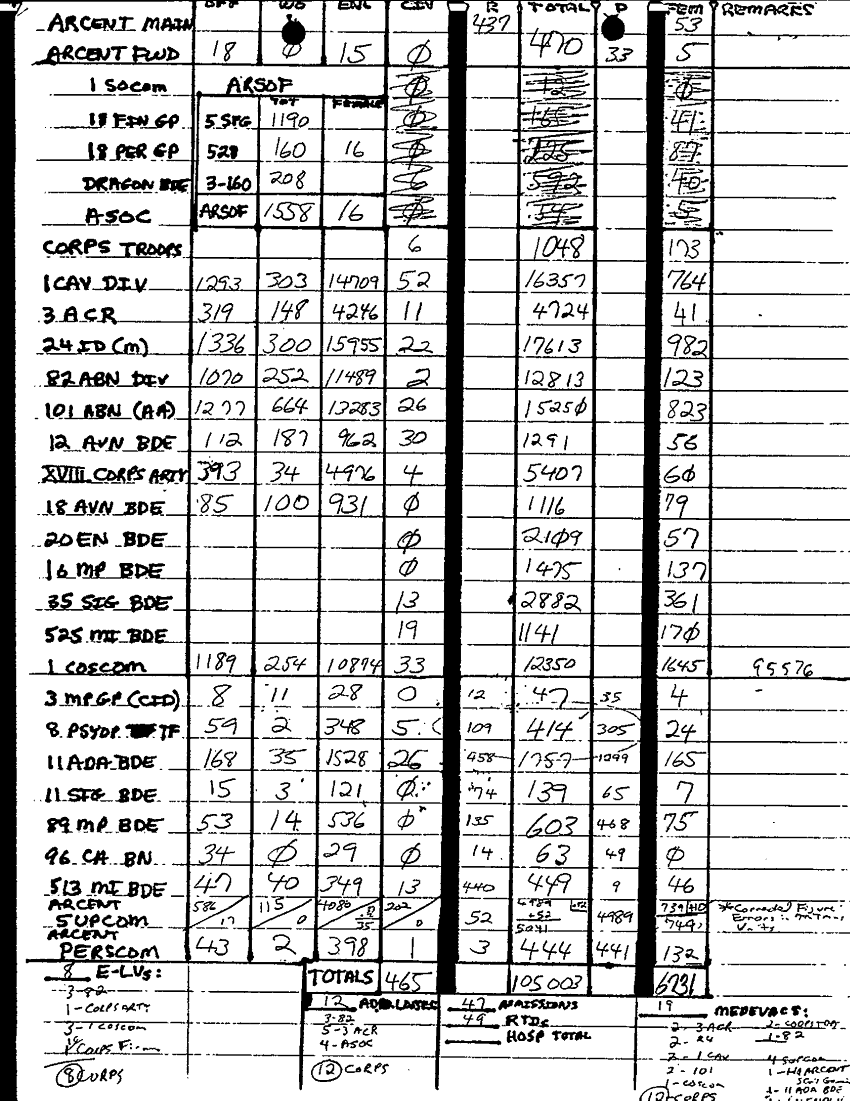 OFF WO ENL CIV R TOTAL P FEM REMARKS
ARCENT MAIN 437 470 53
ARCENT FWD 18 Ø 15 Ø 33 5
1 SOCOM ARSOF Ø Ø
TOT FEMALE
18 FIN GP 5 SFG 1190 Ø 41
18 PER GP 528 160 16 Ø 225 87
DRAGON BDE 3-160 208 6 592 40
ASOC ARSOF 1558 16 Ø 54 5
CORPS TROOPS 6 1048 173
1 CAV DIV 1293 303 14709 52 16357 764
3 ACR 319 148 4246 11 4724 41
24 ID (M) 1336 300 15955 22 17613 982
82 ABN DIV 1070 252 11489 2 12813 123
101 ABN (AA) 1277 664 13283 26 1525Ø 823
12 AVN BDE 112 187 962 30 1291 56
XVIII CORPS ARTY 393 34 4976 4 5407 6Ø
18 AVN BDE 85 100 931 Ø 1116 79
20 EN BDE Ø 21Ø9 57
16 MP BDE Ø 1475 137
35 SIG BDE 13 2882 361
525 MI BDE 19 1141 17Ø
1 COSCOM 1189 254 10874 33 12350 1645 95576
3 MP GP (CID) 8 11 28 0 12 47 35 4
8 PSYOP TF 59 2 348 5 109 414 305 24
11 ADA BDE 168 35 1528 26 458 1757 1299 165
11 SIG BDE 15 3 121 Ø 74 139 65 7
89 MP BDE 53 14 536 Ø 135 603 468 75
96 CA BN 34 Ø 29 Ø 14 63 49 Ø
513 MI BDE 47 40 349 13 440 449 9 46
ARCENT 586 115 4080 202 4989 739
SUPCOM 17 0 35 0 52 +52 5041 4989 Errors in
ARCENT
PERSCOM 43 2 398 1 3 444 441 132
8 E-LVs: TOTALS 465 105003 6731
3-82 12 47 ADMISSIONS 19 MEDEVACS:
1-CORPS ARTY 3-82 49 RTDs 2-3 ACR
3-1 COSCOM 5-3 ACR HOSP TOTAL 2-24 1-82
4-ASOC 2-1 CAV 4 SUPCOM
8 CORPS 12 CORPS 2-101 1-HQ ARCENT
1-COSCOM 1-11 ADA BDE
12 CORPS